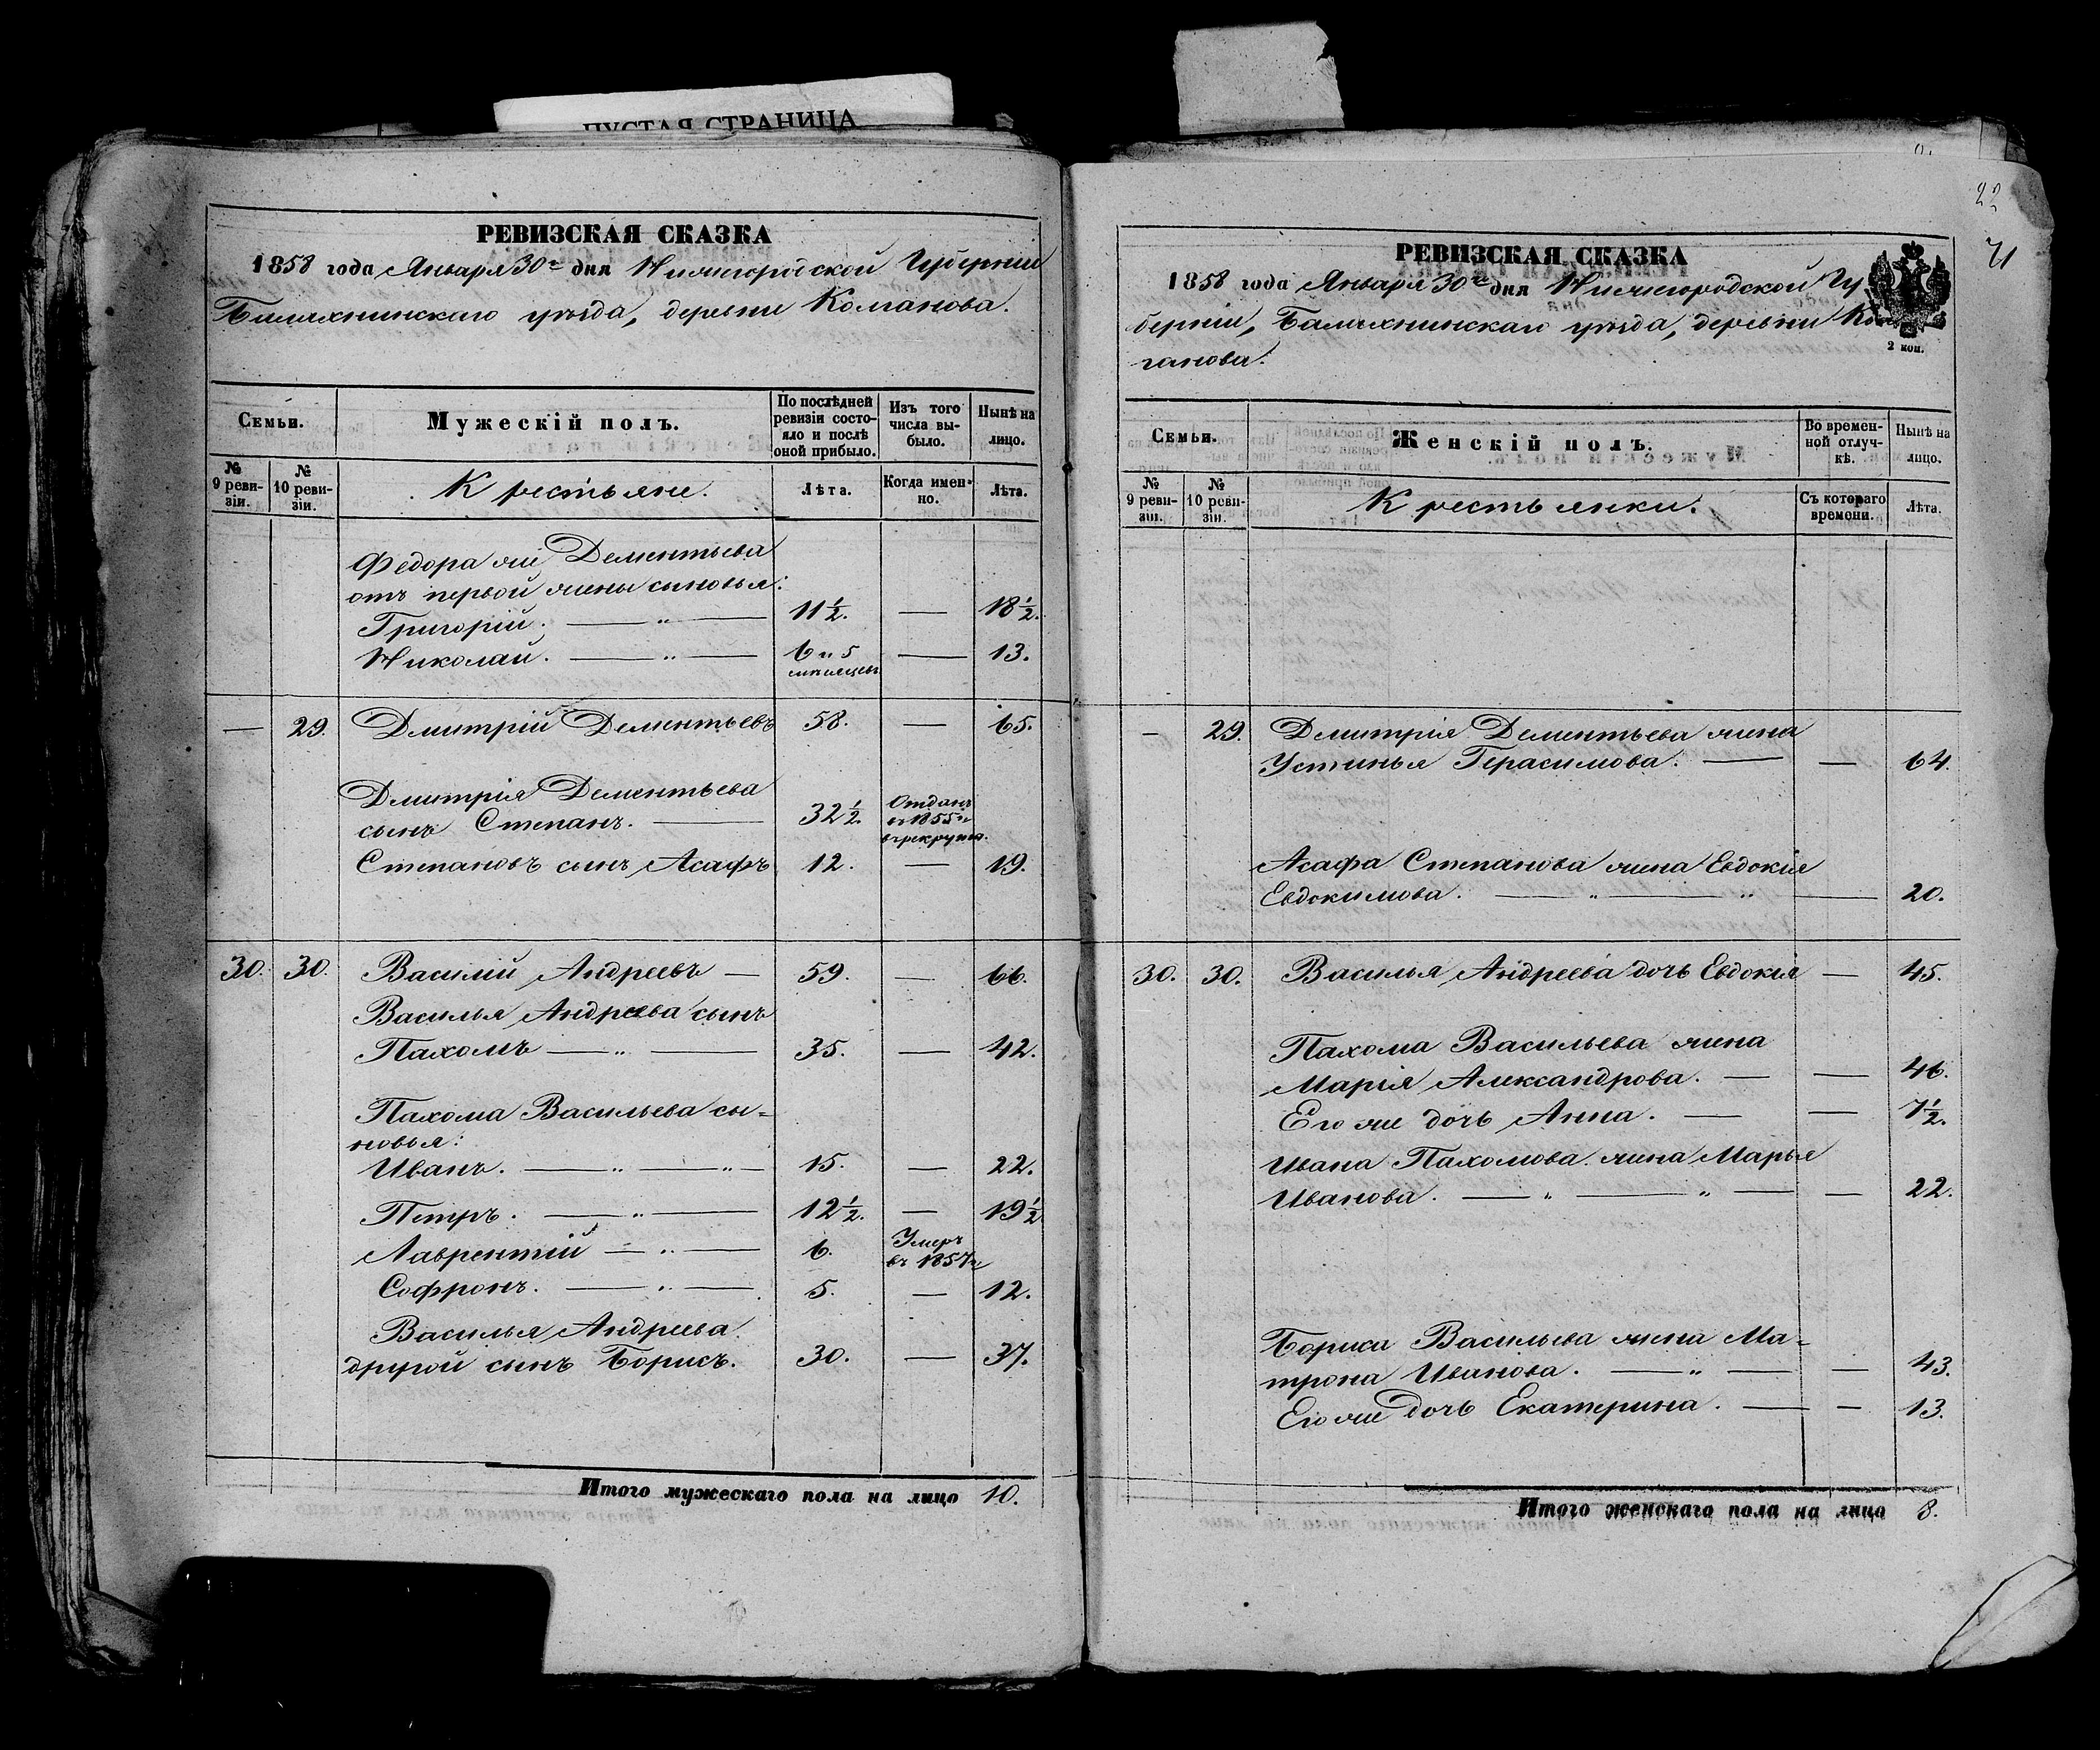 ПУСТАЯ СТРАНИЦА
РЕВИЗСКАЯ СКАЗКА
1858 года Января 30го дня Нижегородской Губерніи
Балахнинскаго уѣзда, деревни Колганова.
Семьи.
Мужескій полъ.
По послѣдней ревизіи состояло и послѣ оной прибыло.
Изъ того числа выбыло.
Нынѣ на лицо.
№ 9 ревизіи.
№ 10 ревизіи.
Крестьяне.
Лѣта.
Когда именно.
Лѣта.
Федора же Дементьева
отъ первой жены сыновья:
Григорій. — „ — 11½. — 18½.
Николай. — „ — 6 и 5 мѣсяцевъ — 13.
— 29. Дмитрій Дементьевъ 58. — 65.
Дмитрія Дементьева
сынъ Степанъ. — 32½. Отданъ въ 1855 г. въ рекруты.
Степановъ сынъ Асафъ 12. — 19.
30. 30. Василій Андреевъ — 59. — 66.
Василья Андреева сынъ
Пахомъ — „ — 35. — 42.
Пахома Васильева сы-
новья:
Иванъ. — „ — „ — 15. — 22.
Петръ. — „ — 12½. — 19½
Лаврентій — „ — 6. Умеръ въ 1857 г.
Софронъ. — „ — 5. — 12.
Василья Андреева
другой сынъ Борисъ. 30. — 37.
Итого мужескаго пола на лицо 10.
22
71
РЕВИЗСКАЯ СКАЗКА
1858 года Января 30го дня Нижегородской Гу-
берніи, Балахнинскаго уѣзда, деревни Кол-
ганова.
2 коп.
Семьи.
Женскій полъ.
Во временной отлучкѣ.
Нынѣ на лицо.
№ 9 ревизіи.
№ 10 ревизіи.
Крестьянки.
Съ котораго времени.
Лѣта.
— 29. Дмитрія Дементьева жена
Устинья Герасимова. — — 64.
Асафа Степанова жена Евдокія
Евдокимова. — „ — „ — 20.
30. 30. Василья Андреева дочь Евдокія — 45.
Пахома Васильева жена
Марія Александрова. — — 46.
Его же дочь Анна. — — 7½.
Ивана Пахомова жена Марья
Иванова. — „ — „ — — 22.
Бориса Васильева жена Ма-
трона Иванова. — „ — — 43.
Его же дочь Екатерина. — — 13.
Итого женскаго пола на лицо 8.